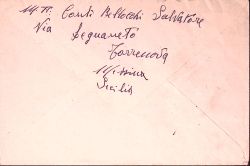 Conti Bellocchi Salvatore
Via Segnaneto
Torrenova
Messina
Sicilia